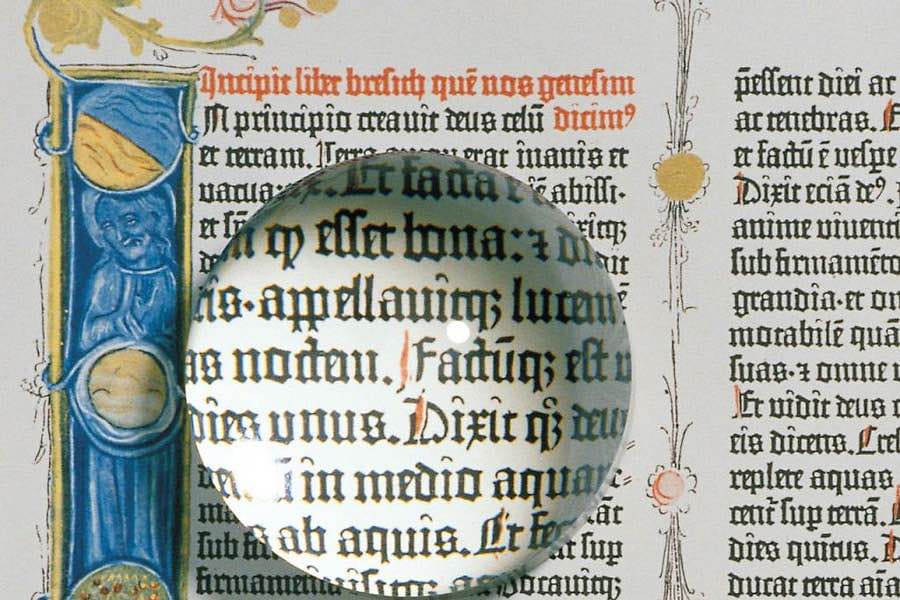 Incipit liber bresich quē nos genesim
In principio creauit deus celū dicim⁹
et terram. Terra autem erat inanis et
uacua: abissi·
Et facta e
qȝ esset bona: ⁊ di
appellauitqȝ lucem
as noctem. Factūqȝ est
dies unus. Dixit qȝ deus
in medio aquar
ab aquis. Et fec
at sup
firmamentū
p̄essent diei ac
ac tenebras. E
et factū ē uesp̄e
Dixit eciā de⁹.
anime uiuenti
sub firmamēto
grandia·et om
motabilē quā
suas·⁊ omne u
Et uidit deus q
eis dicens. Cres
replete aquas
cent᷑ sup terrā.
dies quītus. D
ducat terra aīa